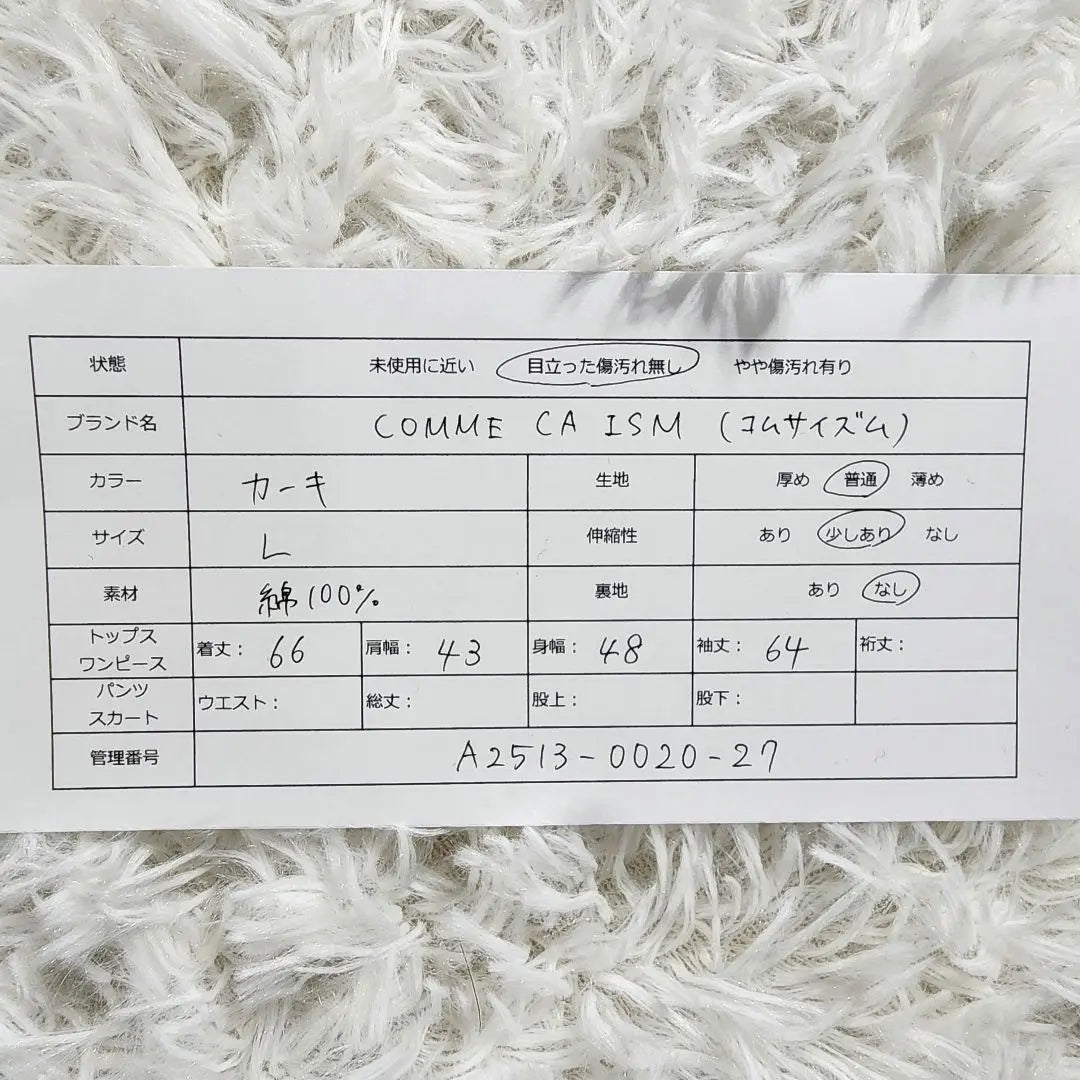 状態 未使用に近い 目立った傷汚れ無し やや傷汚れ有り
ブランド名 COMME CA ISM (コムサイズム)
カラー カーキ 生地 厚め 普通 薄め
サイズ L 伸縮性 あり 少しあり なし
素材 綿100% 裏地 あり なし
トップス
ワンピース 着丈: 66 肩幅: 43 身幅: 48 袖丈: 64 裄丈:
パンツ
スカート ウエスト: 総丈: 股上: 股下:
管理番号 A2513-0020-27